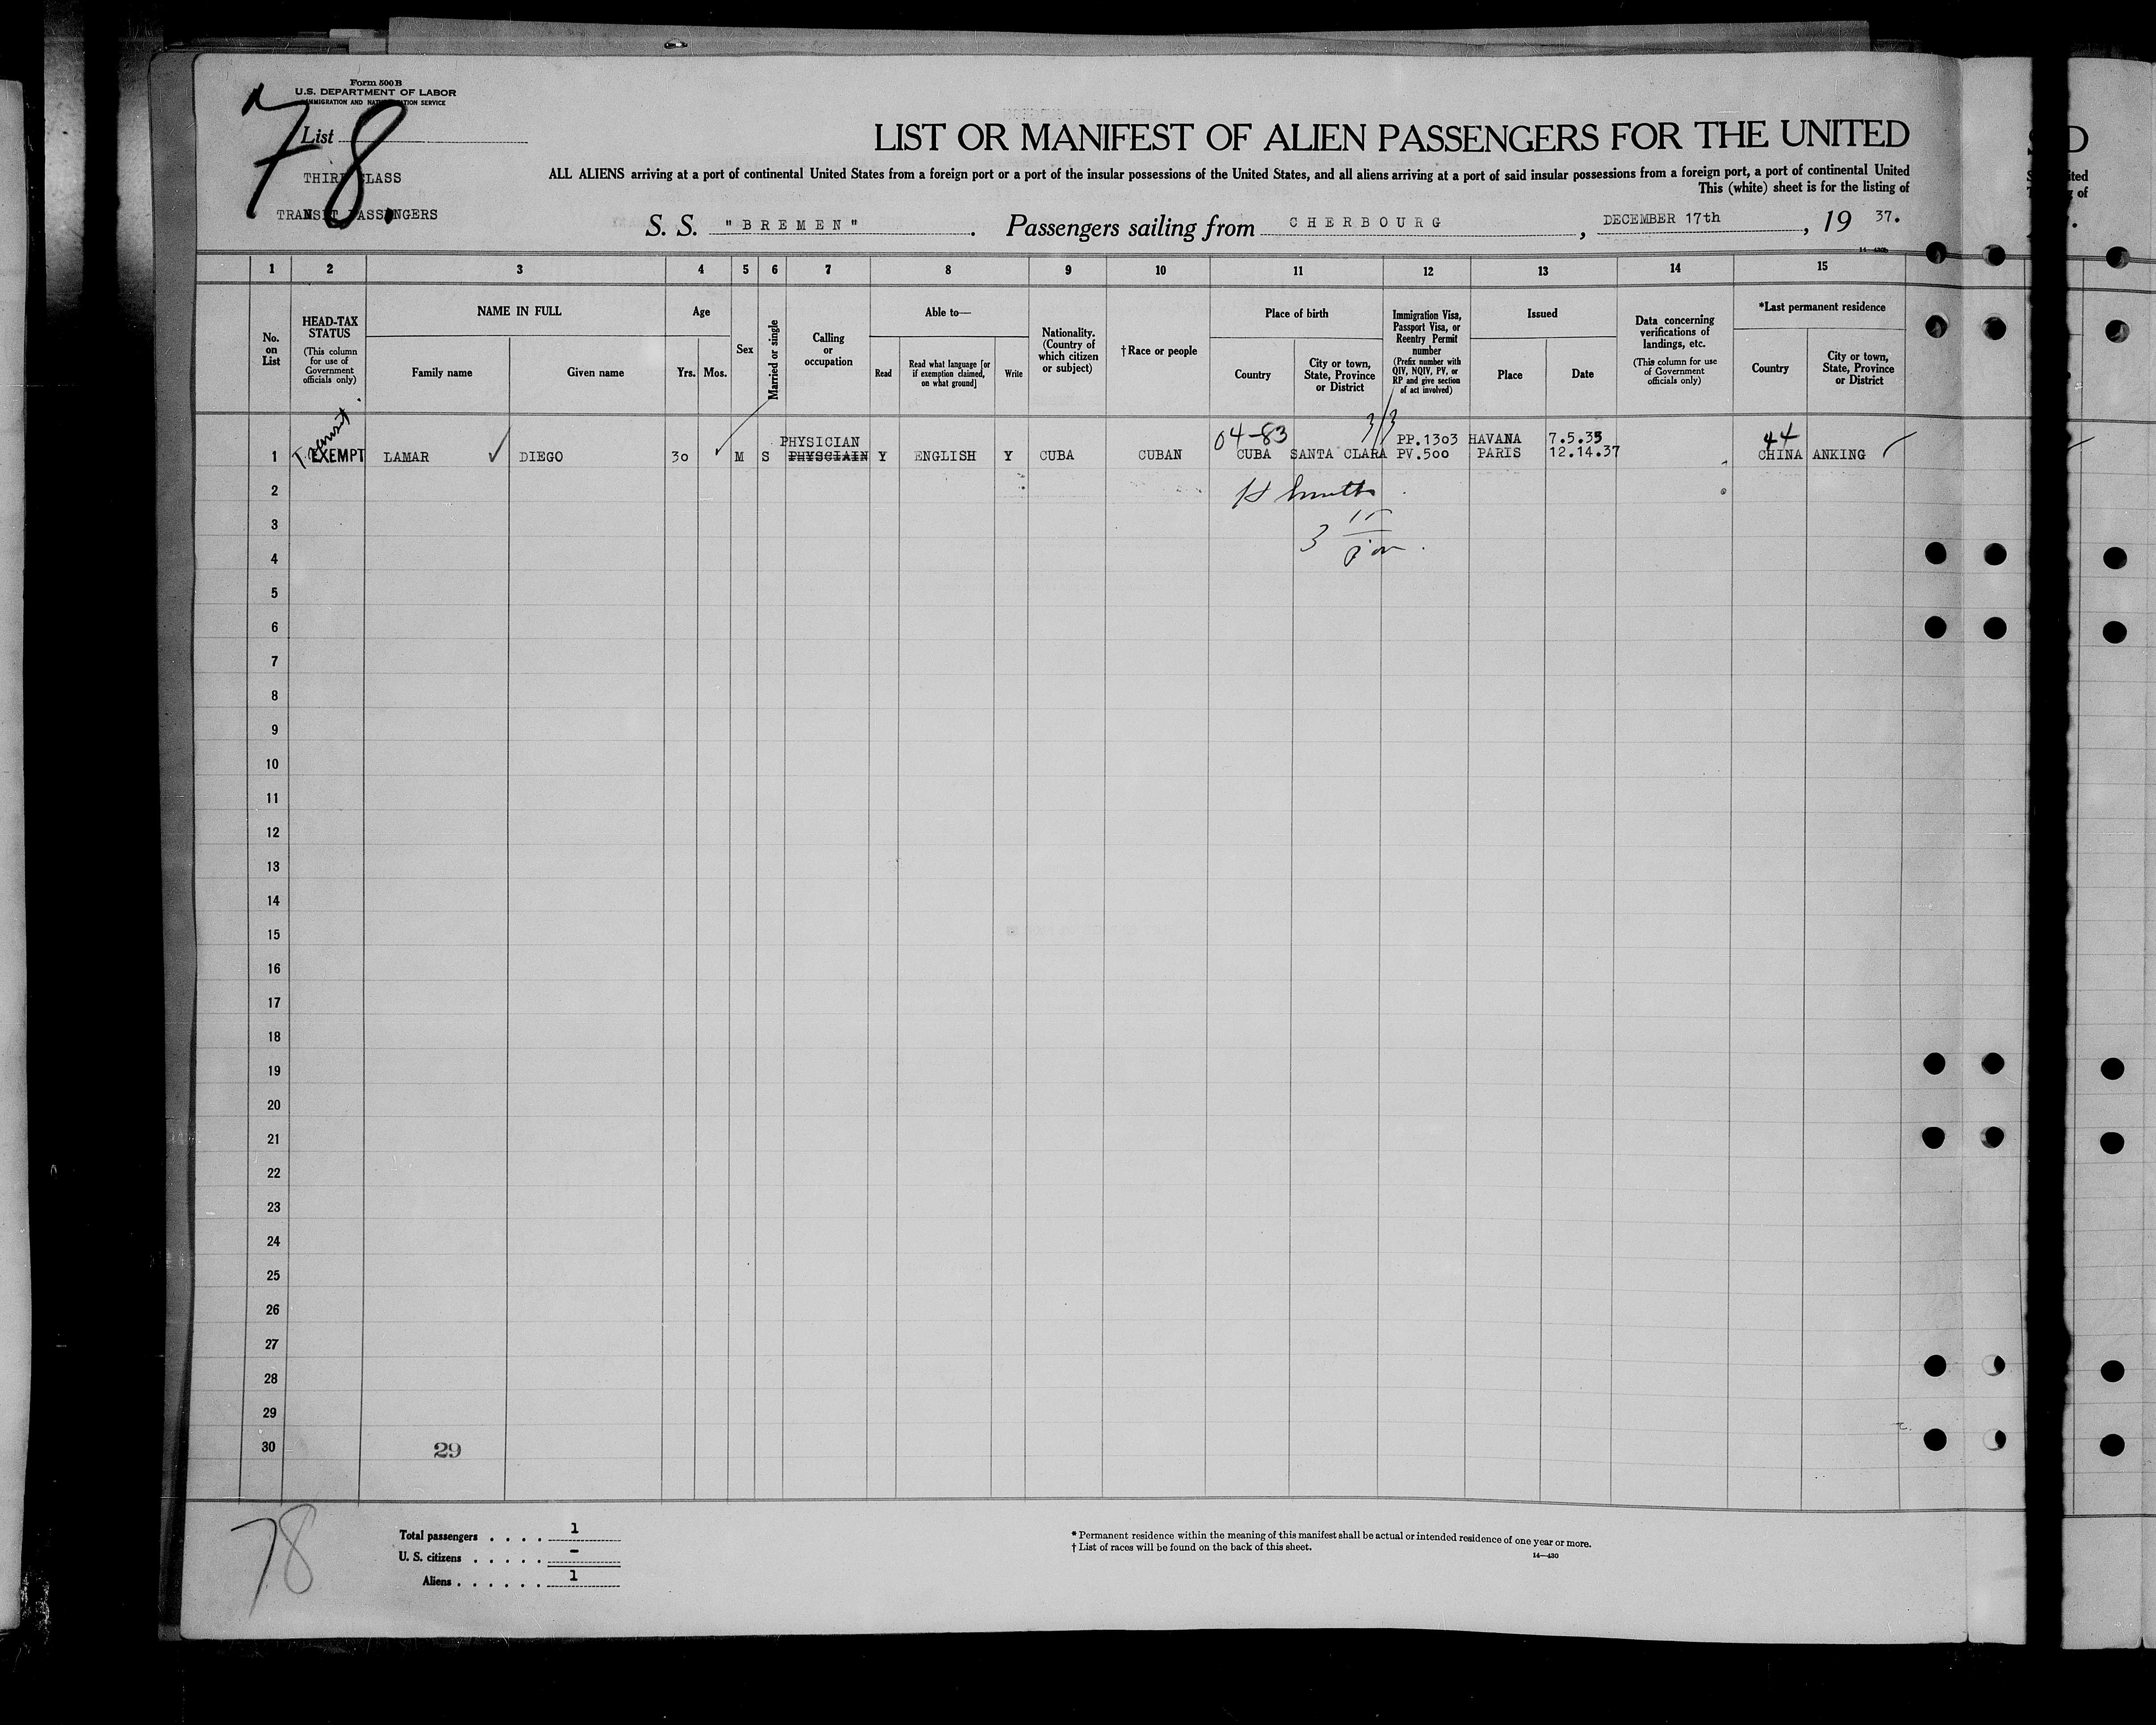 Form 500B
U.S. DEPARTMENT OF LABOR
IMMIGRATION AND NATURALIZATION SERVICE
78.
List
THIRD CLASS
TRANSIT PASSENGERS
LIST OR MANIFEST OF ALIEN PASSENGERS FOR THE UNITED
ALL ALIENS arriving at a port of continental United States from a foreign port or a port of the insular possessions of the United States, and all aliens arriving at a port of said insular possessions from a foreign port, a port of continental United
This (white) sheet is for the listing of
S. S. "BREMEN". Passengers sailing from CHERBOURG, DECEMBER 17th, 19 37.
14—430b
1 2 3 4 5 6 7 8 9 10 11 12 13 14 15
No. on List
HEAD-TAX STATUS
(This column for use of Government officials only)
NAME IN FULL
Family name Given name
Age
Yrs. Mos.
Sex
Married or single
Calling or occupation
Able to—
Read
Read what language [or if exemption claimed, on what ground]
Write
Nationality. (Country of which citizen or subject)
†Race or people
Place of birth
Country
City or town, State, Province or District
Immigration Visa, Passport Visa, or Reentry Permit number
(Prefix number with QIV, NQIV, PV, or RP and give section of act involved)
Issued
Place Date
Data concerning verifications of landings, etc.
(This column for use of Government officials only)
*Last permanent residence
Country
City or town, State, Province or District
Transit
PHYSICIAN 04-83 3/3 PP.1303 HAVANA 7.5.35 44
1 EXEMPT LAMAR DIEGO 30 M S PHYSCIAIN Y ENGLISH Y CUBA CUBAN CUBA SANTA CLARA PV.500 PARIS 12.14.37 CHINA ANKING
2
3
4
5
6
7
8
9
10
11
12
13
14
15
16
17
18
19
20
21
22
23
24
25
26
27
28
29
30 29
78
Total passengers . . . . 1
U. S. citizens . . . . . -
Aliens . . . . . . 1
* Permanent residence within the meaning of this manifest shall be actual or intended residence of one year or more.
† List of races will be found on the back of this sheet.
14—430